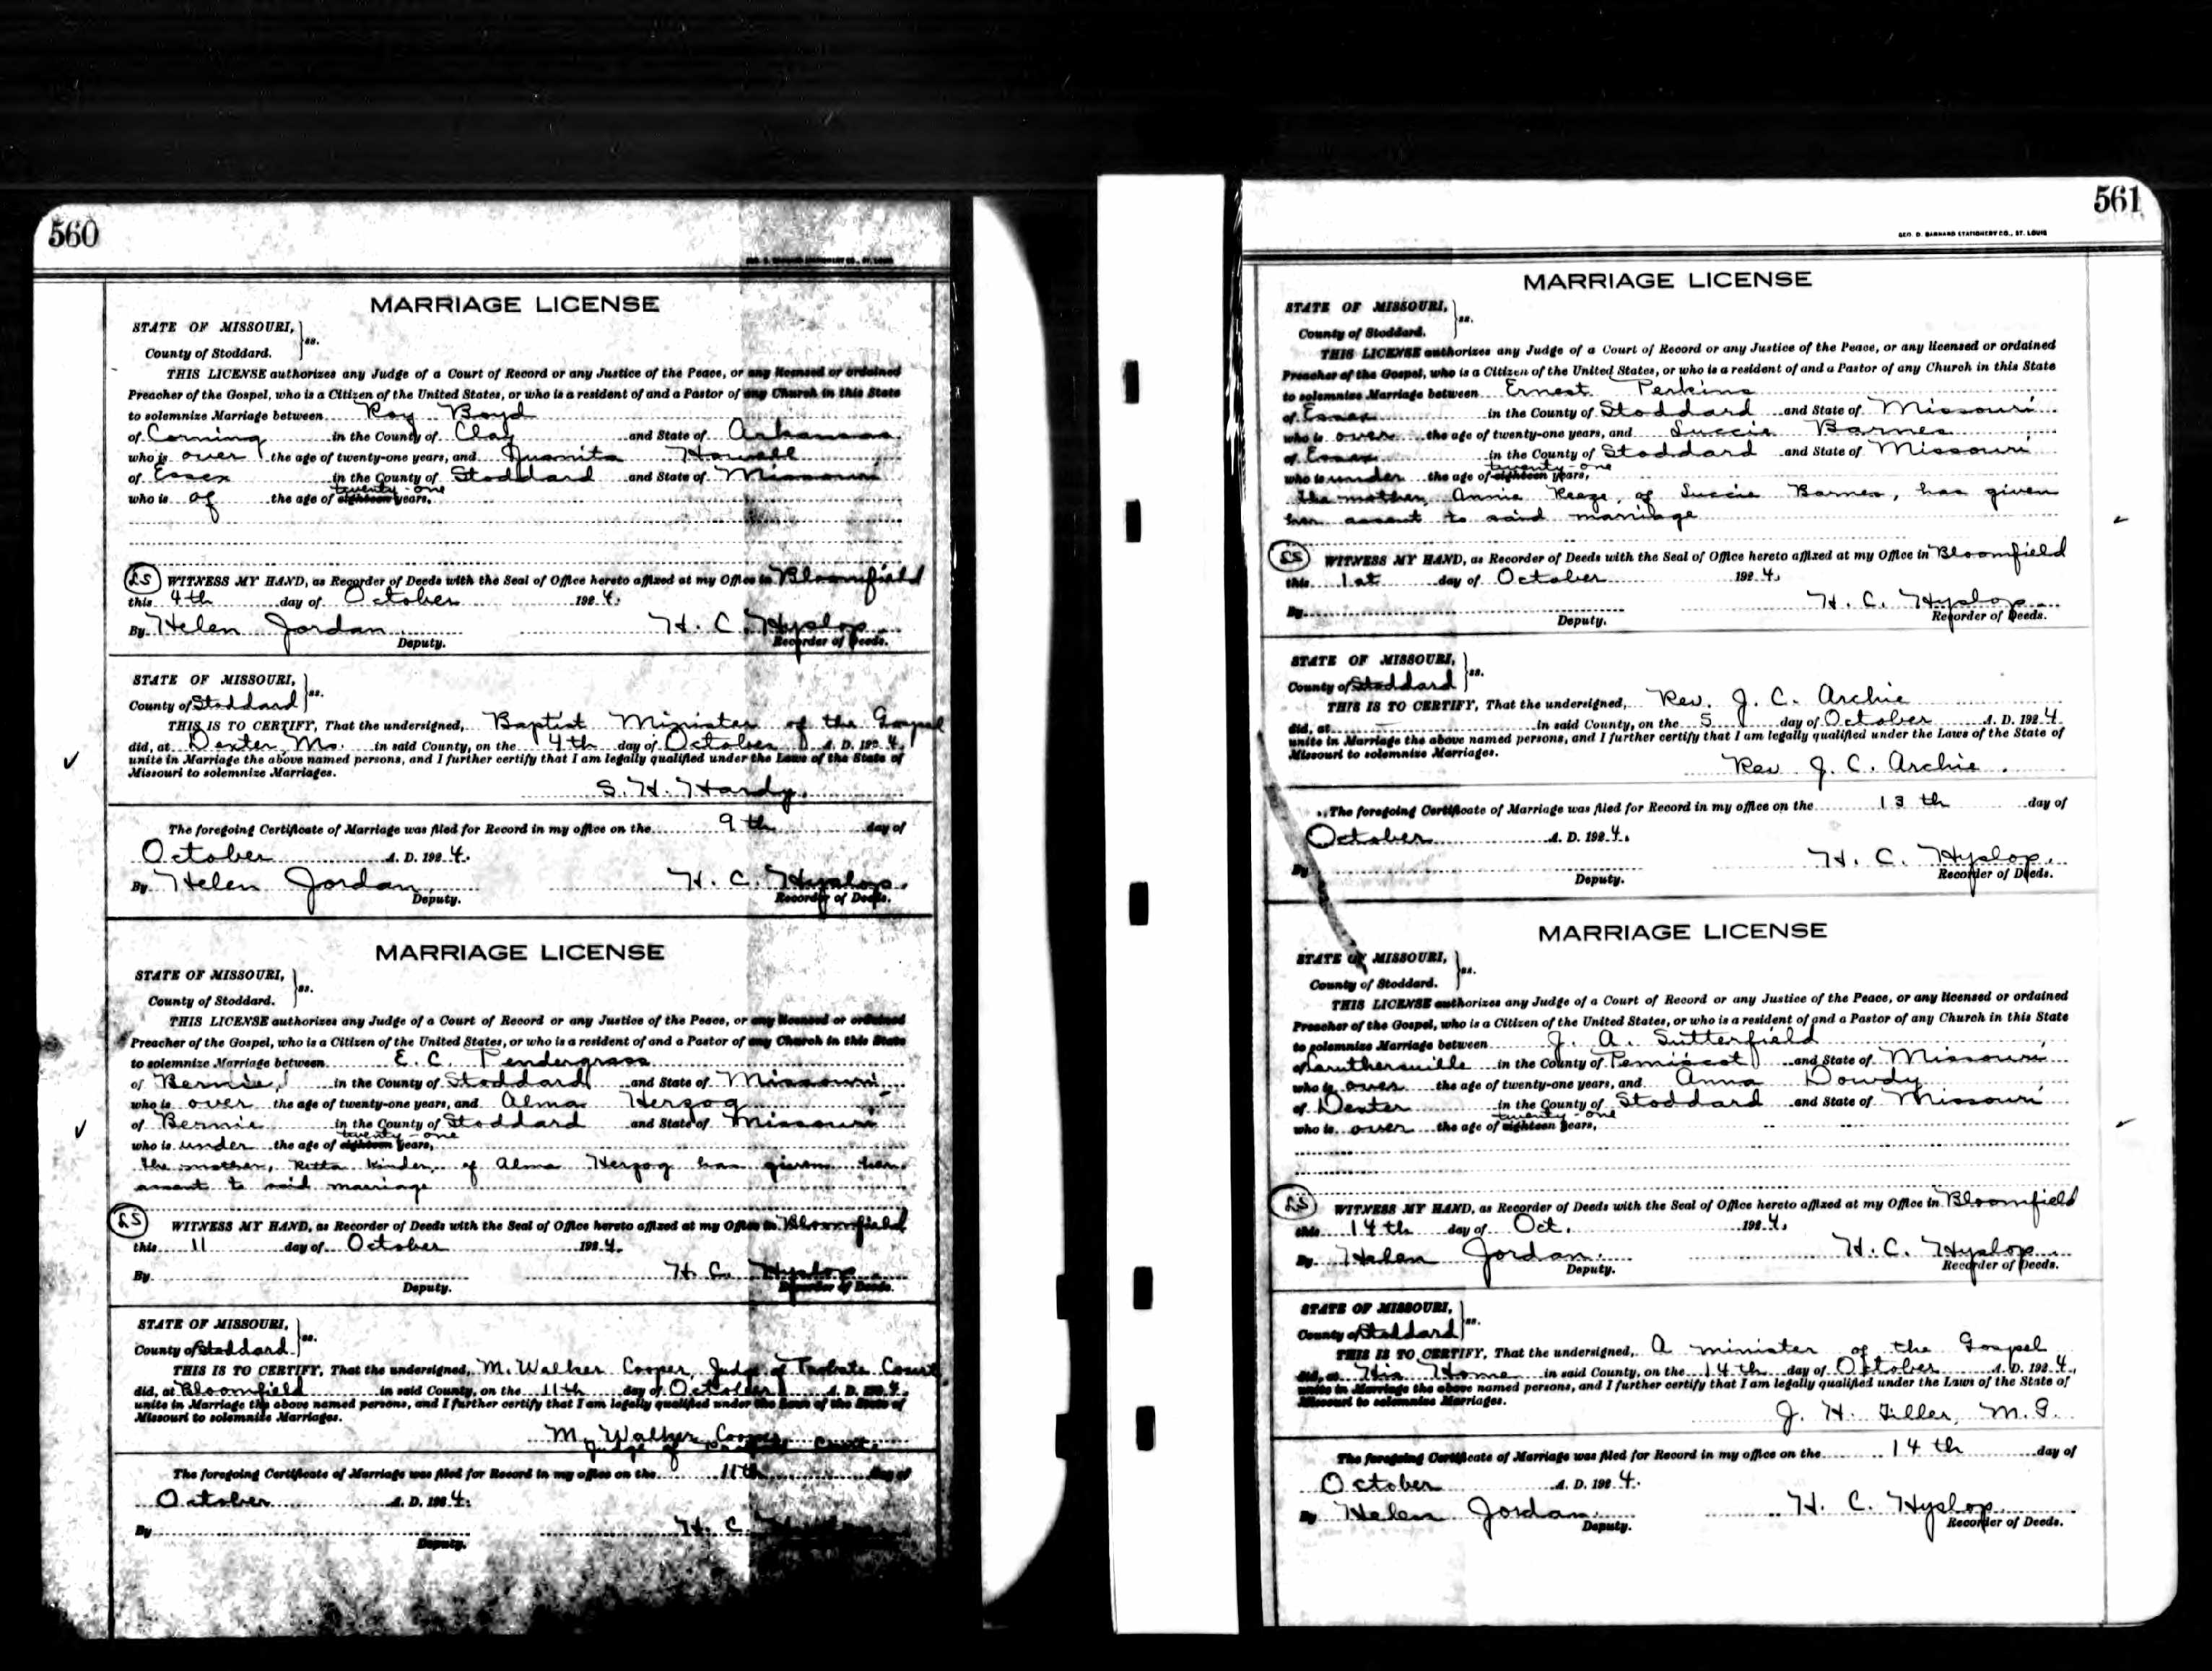 560
GEO. D. BARNARD STATIONERY CO., ST. LOUIS
MARRIAGE LICENSE
STATE OF MISSOURI, } ss.
County of Stoddard.
THIS LICENSE authorizes any Judge of a Court of Record or any Justice of the Peace, or any licensed or ordained
Preacher of the Gospel, who is a Citizen of the United States, or who is a resident of and a Pastor of any Church in this State
to solemnize Marriage between Roy Boyd
of Corning in the County of Clay and State of Arkansas
who is over the age of twenty-one years, and Juanita Howell
of Essex in the County of Stoddard and State of Missouri
twenty-one
who is of the age of eighteen years,
LS WITNESS MY HAND, as Recorder of Deeds with the Seal of Office hereto affixed at my Office in Bloomfield
this 4th day of October 1924.
By Helen Jordan H. C. Hyslop
Deputy. Recorder of Deeds.
STATE OF MISSOURI, } ss.
County of Stoddard
THIS IS TO CERTIFY, That the undersigned, Baptist Minister of the Gospel
did, at Dexter, Mo. in said County, on the 4th day of October A. D. 1924,
unite in Marriage the above named persons, and I further certify that I am legally qualified under the Laws of the State of
Missouri to solemnize Marriages.
S. H. Hardy.
The foregoing Certificate of Marriage was filed for Record in my office on the 9th day of
October A. D. 1924.
By Helen Jordan, H. C. Hyslop.
Deputy. Recorder of Deeds.
MARRIAGE LICENSE
STATE OF MISSOURI, } ss.
County of Stoddard.
THIS LICENSE authorizes any Judge of a Court of Record or any Justice of the Peace, or any licensed or ordained
Preacher of the Gospel, who is a Citizen of the United States, or who is a resident of and a Pastor of any Church in this State
to solemnize Marriage between E. C. Pendergrass
of Bernie, in the County of Stoddard and State of Missouri
who is over the age of twenty-one years, and Alma Herzog
of Bernie in the County of Stoddard and State of Missouri
twenty-one
who is under the age of eighteen years,
the mother, Kinder, of Alma Herzog has given her
assent to said marriage
LS WITNESS MY HAND, as Recorder of Deeds with the Seal of Office hereto affixed at my Office in Bloomfield
this 11 day of October 1924.
By H. C. Hyslop
Deputy. Recorder of Deeds.
STATE OF MISSOURI, } ss.
County of Stoddard
THIS IS TO CERTIFY, That the undersigned, M. Walker Cooper, Judge of Probate Court
did, at Bloomfield in said County, on the 11th day of October A. D. 1924,
unite in Marriage the above named persons, and I further certify that I am legally qualified under the Laws of the State of
Missouri to solemnize Marriages.
M. Walker Cooper
Judge of Probate Court
The foregoing Certificate of Marriage was filed for Record in my office on the 11th day of
October A. D. 1924.
By H. C.
Deputy.
561
GEO. D. BARNARD STATIONERY CO., ST. LOUIS
MARRIAGE LICENSE
STATE OF MISSOURI, } ss.
County of Stoddard.
THIS LICENSE authorizes any Judge of a Court of Record or any Justice of the Peace, or any licensed or ordained
Preacher of the Gospel, who is a Citizen of the United States, or who is a resident of and a Pastor of any Church in this State
to solemnize Marriage between Ernest Perkins
of Essex in the County of Stoddard and State of Missouri
who is over the age of twenty-one years, and Luccie Barnes
of Essex in the County of Stoddard and State of Missouri
twenty-one
who is under the age of eighteen years,
the mother, Annie of Luccie Barnes, has given
her assent to said marriage
LS WITNESS MY HAND, as Recorder of Deeds with the Seal of Office hereto affixed at my Office in Bloomfield
this 1st day of October 1924.
By H. C. Hyslop
Deputy. Recorder of Deeds.
STATE OF MISSOURI, } ss.
County of Stoddard
THIS IS TO CERTIFY, That the undersigned, Rev. J. C. Archie
did, at in said County, on the 5 day of October A. D. 1924
unite in Marriage the above named persons, and I further certify that I am legally qualified under the Laws of the State of
Missouri to solemnize Marriages.
Rev J. C. Archie.
The foregoing Certificate of Marriage was filed for Record in my office on the 13th day of
October A. D. 1924.
By H. C. Hyslop.
Deputy. Recorder of Deeds.
MARRIAGE LICENSE
STATE OF MISSOURI, } ss.
County of Stoddard.
THIS LICENSE authorizes any Judge of a Court of Record or any Justice of the Peace, or any licensed or ordained
Preacher of the Gospel, who is a Citizen of the United States, or who is a resident of and a Pastor of any Church in this State
to solemnize Marriage between J. A. Sutterfield
of Caruthersville in the County of Pemiscot and State of Missouri
who is over the age of twenty-one years, and Anna Dowdy
of Dexter in the County of Stoddard and State of Missouri
twenty-one
who is over the age of eighteen years,
LS WITNESS MY HAND, as Recorder of Deeds with the Seal of Office hereto affixed at my Office in Bloomfield
this 14th day of Oct. 1924.
By Helen Jordan. H. C. Hyslop
Deputy. Recorder of Deeds.
STATE OF MISSOURI, } ss.
County of Stoddard
THIS IS TO CERTIFY, That the undersigned, A minister of the Gospel
did, at His Home in said County, on the 14th day of October A. D. 1924,
unite in Marriage the above named persons, and I further certify that I am legally qualified under the Laws of the State of
Missouri to solemnize Marriages.
J. H. Tiller, M. G.
The foregoing Certificate of Marriage was filed for Record in my office on the 14th day of
October A. D. 1924.
By Helen Jordan. H. C. Hyslop
Deputy. Recorder of Deeds.